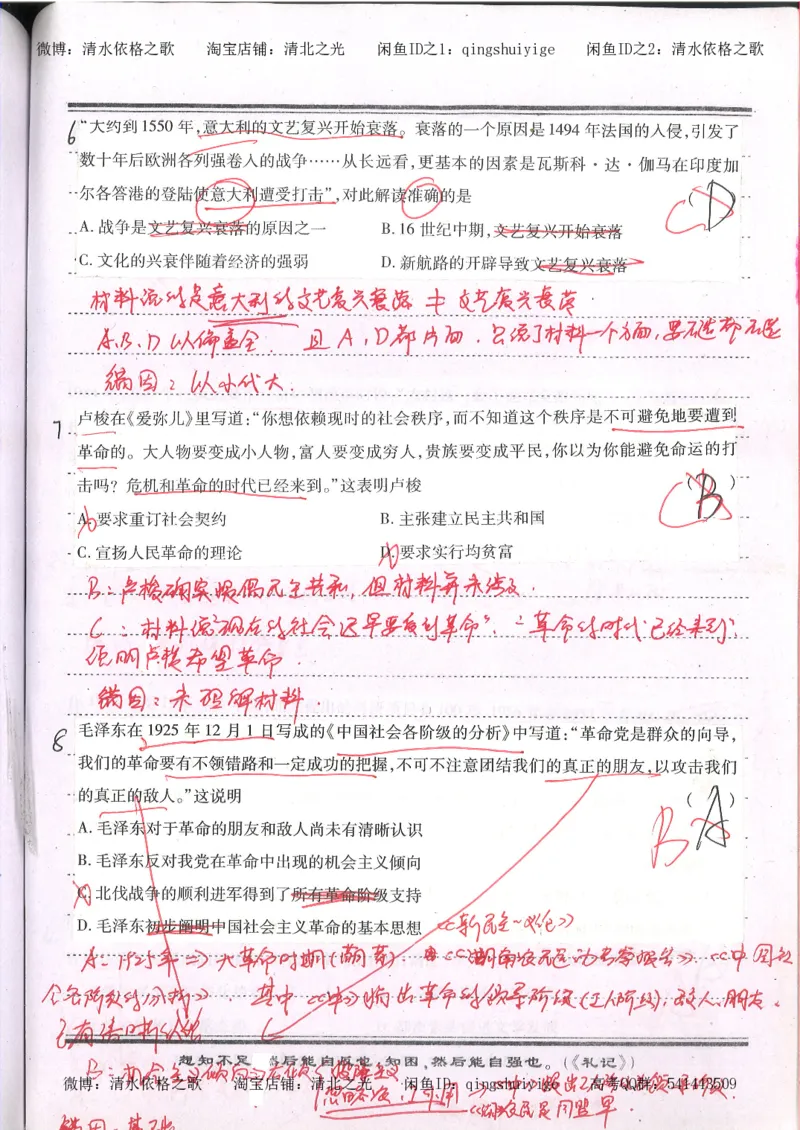 微博：清水依格之歌 淘宝店铺：清北之光 闲鱼ID之1：qingshuiyige 闲鱼ID之2：清水依格之歌
6 “大约到1550年，意大利的文艺复兴开始衰落。衰落的一个原因是1494年法国的入侵，引发了
数十年后欧洲各列强卷入的战争……从长远看，更基本的因素是瓦斯科·达·伽马在印度加
尔各答港的登陆使意大利遭受打击”，对此解读准确的是 (D) C
A. 战争是文艺复兴衰落的原因之一 B. 16世纪中期，文艺复兴开始衰落
C. 文化的兴衰伴随着经济的强弱 D. 新航路的开辟导致文艺复兴衰落
材料说的是意大利的文艺复兴衰落 ≠ 文艺复兴衰落.
A、B、D以偏盖全. 且A，D都片面. 只说了材料一个方面，要不选都不选
错因：以小代大.
7 卢梭在《爱弥儿》里写道：“你想依赖现时的社会秩序，而不知道这个秩序是不可避免地要遭到
革命的。大人物要变成小人物，富人要变成穷人，贵族要变成平民，你以为你能避免命运的打
击吗？危机和革命的时代已经来到。”这表明卢梭 (B) C
A. 要求重订社会契约 B. 主张建立民主共和国
C. 宣扬人民革命的理论 D. 要求实行均贫富
B：卢梭确实提倡民主共和，但材料并未涉及.
C：材料说“现在的社会迟早要受到革命”，“革命的时代已经来到”，
说明卢梭希望革命.
错因：未理解材料.
8 毛泽东在1925年12月1日写成的《中国社会各阶级的分析》中写道：“革命党是群众的向导，
我们的革命要有不领错路和一定成功的把握，不可不注意团结我们的真正的朋友，以攻击我们
的真正的敌人。”这说明 (A) B
A. 毛泽东对于革命的朋友和敌人尚未有清晰认识
B. 毛泽东反对我党在革命中出现的机会主义倾向
C. 北伐战争的顺利进军得到了所有革命阶级支持
D. 毛泽东初步阐明中国社会主义革命的基本思想 《新民主~义论》
A：1925年⇒大革命时期(萌芽) 《湖南农民运动考察报告》《中国社
会各阶级的分析》. 其中《中》指出革命的领导阶级(工人阶级)，敌人，朋友，
已有清晰认识
想知不足 然后能自反也，知困，然后能自强也。（《礼记》）
B：机会主义倾向
微博：清水依格之歌 淘宝店铺：清北之光 闲鱼ID：qingshuiyige 高考QQ群：541443509
农民同盟军.
错因：基础